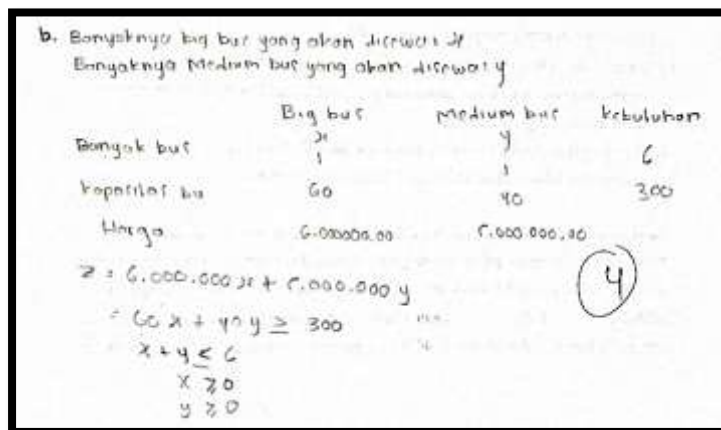 b. Banyaknya big bus yang akan disewa: x
Banyaknya Medium bus yang akan disewa: y
Big bus Medium bus kebutuhan
x y
Banyak bus 1 1 6
kapasitas bus 60 40 300
Harga 6.000000.00 5.000.000,00
z = 6.000.000 x + 5.000.000 y
= 60 x + 40 y ≥ 300
x + y ≤ 6
x ≥ 0
y ≥ 0
4